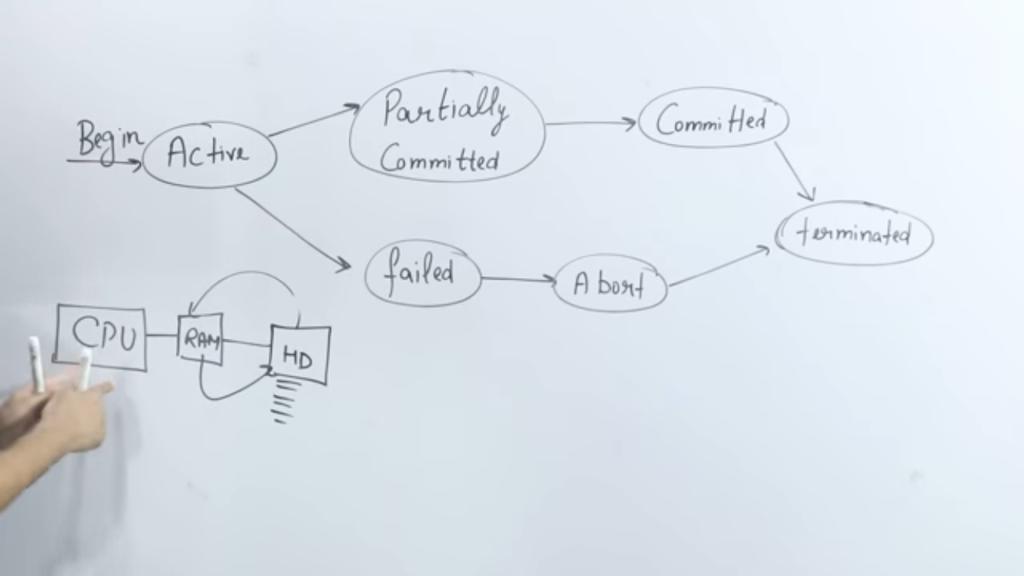 Begin
Active
Partially
Committed
Committed
terminated
failed
Abort
CPU
RAM
HD